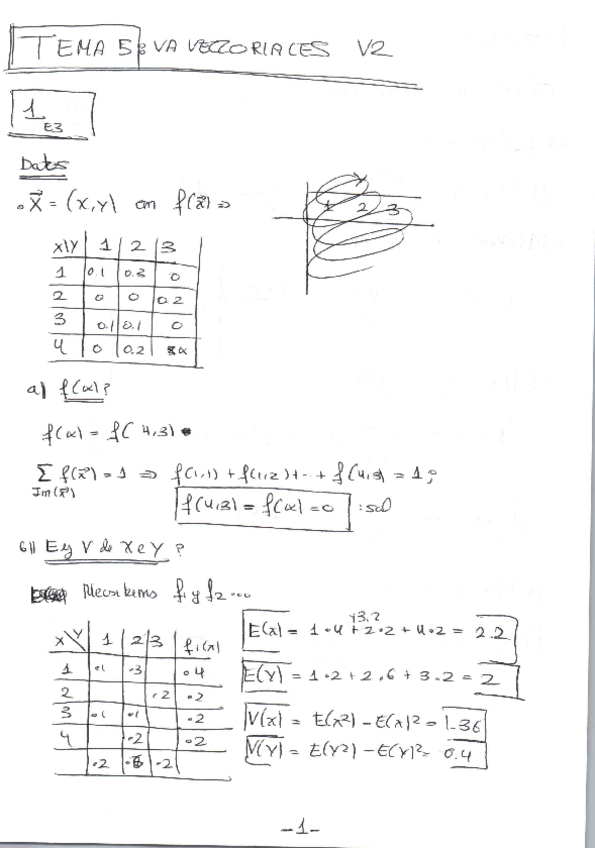 TEMA 5: VA VECTORIALES V2
1
E3
Datos
X⃗ = (X,Y) con f(x⃗) ⇒
Y
1 2 3
X\Y 1 2 3
1 0.1 0.3 0
2 0 0 0.2
3 0.1 0.1 0
4 0 0.2 α
a) f(α)?
f(α) = f(4,3)
∑ f(x⃗) = 1 ⇒ f(1,1) + f(1,2) + ... + f(4,3) = 1;
Im(x⃗)
f(4,3) = f(α) = 0 : sol
b) E y V de X e Y?
Necesitamos f₁ y f₂ ...
X\Y 1 2 3 f₁(x)
1 .1 .3 .4
2 .2 .2
3 .1 .1 .2
4 .2 .2
.2 .6 .2
+3.2
E(x) = 1·4 + 2·2 + 4·2 = 2.2
E(Y) = 1·2 + 2·6 + 3·2 = 2
V(x) = E(x²) - E(x)² = 1.36
V(Y) = E(Y²) - E(Y)² = 0.4
-1-